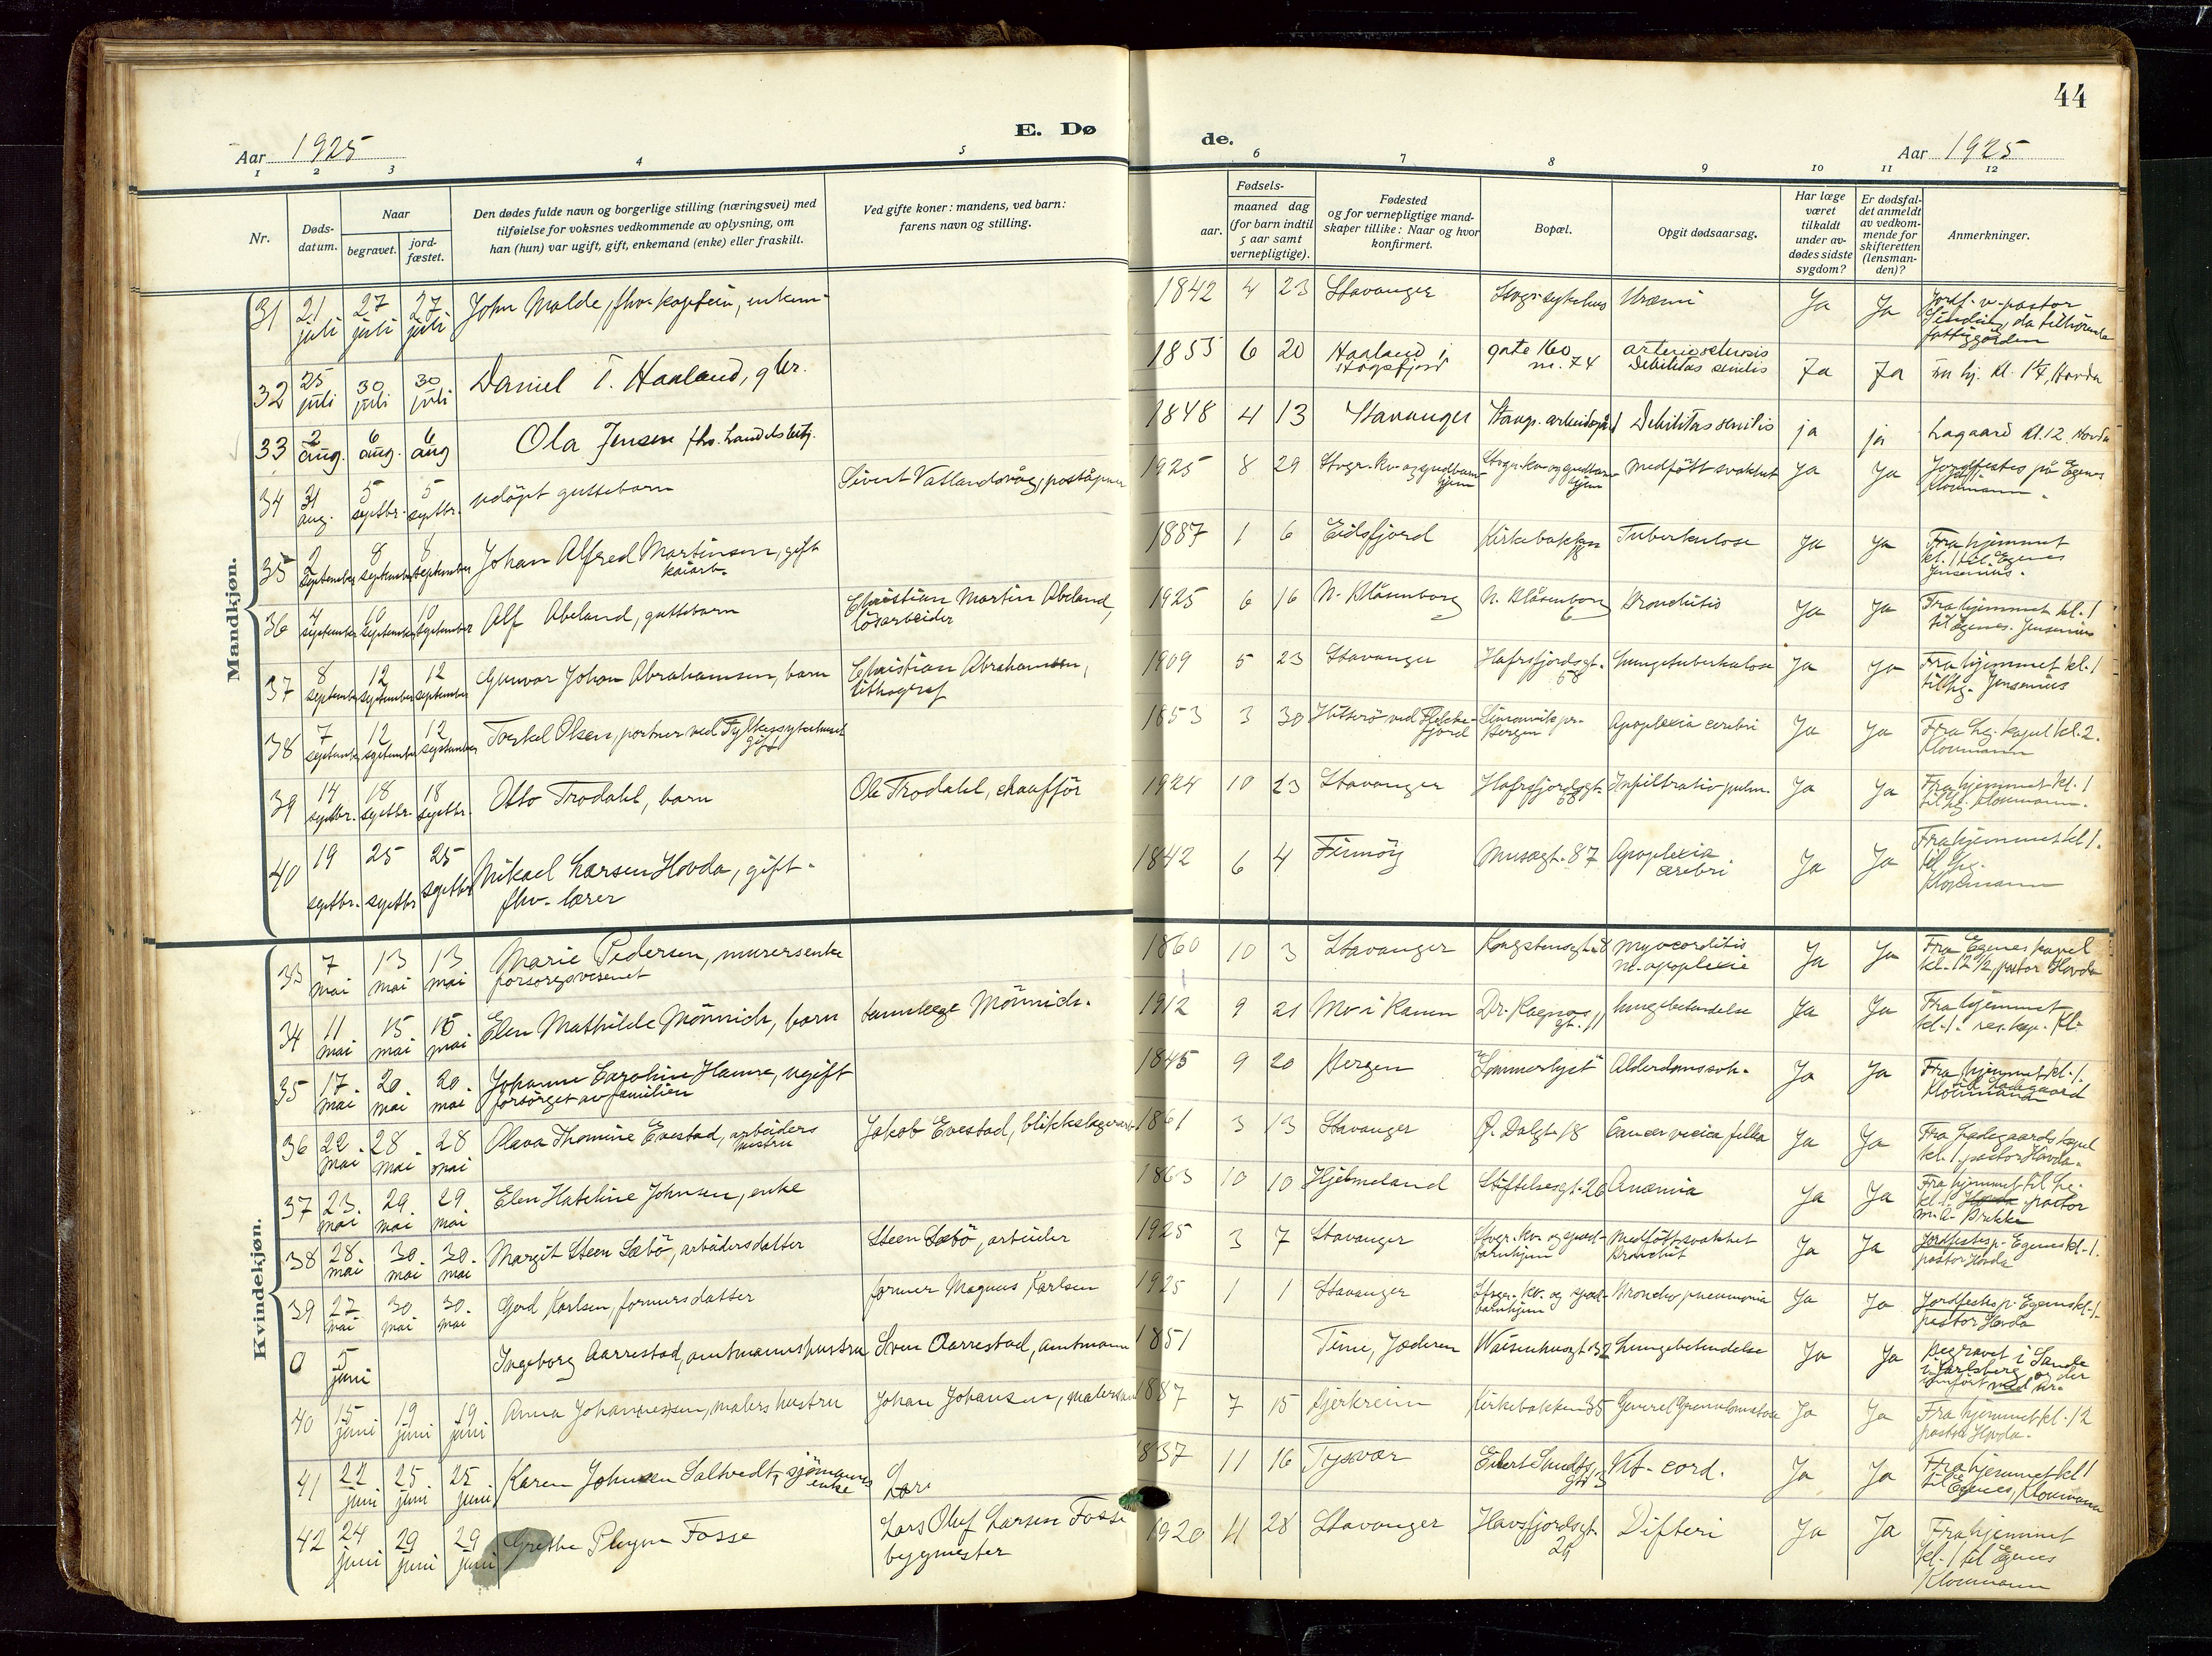 44
Aar 1925
E. Dø
de.
Aar 1925
1 2 3 4 5 6 7 8 9 10 11 12
Nr.
Døds-
datum.
Naar
begravet.
jord-
fæstet.
Den dødes fulde navn og borgerlige stilling (næringsvei) med
tilføielse for voksnes vedkommende av oplysning, om
han (hun) var ugift, gift, enkemand (enke) eller fraskilt.
Ved gifte koner: mandens, ved barn:
farens navn og stilling.
Fødsels-
aar.
maaned dag
(for barn indtil
5 aar samt
vernepligtige).
Fødested
og for vernepligtige mand-
skaper tillike: Naar og hvor
konfirmert.
Bopæl.
Opgit dødsaarsag.
Har læge
været
tilkaldt
under av-
dødes sidste
sygdom?
Er dødsfal-
det anmeldt
av vedkom-
mende for
skifteretten
(lensman-
den)?
Anmerkninger.
Mandkjøn.
31 21 juli 27 juli 27 juli John Malde, fhv. kaptein, enkem. 1842 4 23 Stavanger Stvgr. sykehus Uræmi Ja Ja Jordf. v. pastor
da tilhørende
fattiggården
32 25 juli 30 juli 30 juli Daniel T. Haaland, gbr. 1855 6 20 Haaland i
Høgsfjord gate 160
nr. 74 arteriosclerosis
Debilitas senilis Ja Ja
33 2 aug. 6 aug. 6 aug Ola Jensen fhv. handelsbetj. 1848 4 13 Stavanger Debilitas senilis ja ja Lagaard kl. 12. Hovda
34 31 aug. 5 septbr. 5 septbr. udöpt guttebarn Sivert Vatlandsvåg, poståpner 1925 8 29 Stvgr. kv. og spedbarn-
hjem Stvgr. kv. og spedbarn-
hjem Medfött svakhet Ja Ja Jordfestes på Egenes
Kloumann.
35 2 september 8 september 8 september Johan Alfred Martinsen, gift
kaiarb. 1887 1 6 Eidsfjord Kirkebakken
18 Tuberkulose Ja Ja Fra hjemmet
kl. 1 til Egenes
Jensenius.
36 4 september 10 september 10 september Alf Abeland, guttebarn Christian Martin Abeland,
lösarbeider 1925 6 16 N. Blåsenborg N. Blåsenborg
6 Bronchitis Ja Ja Fra hjemmet kl. 1
til Egenes. Jensenius
37 8 september 12 september 12 september Gunvar Johan Abrahamsen, barn Christian Abrahamsen,
lithograf 1909 5 23 Stavanger Hafrsfjordsgt.
58 Lungetuberkulose Ja Ja Fra hjemmet kl. 1
til Lg. Jensenius
38 7 september 12 september 12 september Torkel Olsen, portner ved Fylkessykehuset
gift 1853 3 30 Hitterö ved Flekke-
fjord
Bergen Apoplexia cerebri Ja Ja Fra Lg. kapel kl. 2.
Kloumann
39 14 septbr. 18 septbr. 18 septbr. Otto Trodahl, barn Ole Trodahl, chaufför 1924 10 23 Stavanger Hafrsfjordsgt.
68 Infiltratio pulm. Ja Ja Fra hjemmet kl. 1
til Lg. Kloumann.
40 19 septbr. 25 septbr 25 septbr Mikael Larsen Hovda, gift.
fhv. lærer 1842 6 4 Finnöy Musegt. 87 Apoplexia
cerebri Ja Ja Fra hjemmet kl. 1.
til Lg.
Kloumann
Kvindekjøn.
33 7 mai 13 mai 13 mai Marie Pedersen, murersenke
forsorgsvesenet 1860 10 3 Stavanger Kongstensgt. 48 Myocorditis
m. apoplexie Ja Ja Fra Egenes kapel
kl. 12 ½, pastor Hovda
34 11 mai 15 mai 15 mai Elen Mathilde Mönnich, barn tannlæge Mönnich. 1912 9 21 Mo i Ranen Dr. Kagnos
gt. 11 Lungebetendelse Ja Ja Fra hjemmet
kl. 1. res. kap. Kl.
35 17. mai 20. mai 20. mai Johanne Caroline Hamre, ugift
forsörget av familien 1845 9 20 Bergen Sommerlyst Alderdomssvk. Ja Ja Fra hjemmet kl. 1.
til Ladegaard
Kloumann
36 22. mai 28. mai 28 mai Olava Thomine Evestad, arbeiders
hustru Jakob Evestad, blikkslagerarb 1861 3 13 Stavanger Ö. Dalgt. 18 Cancer vesica fellea Ja Ja Fra Ladegaards kapel
kl. 1. pastor Hovda.
37 23. mai 29. mai 29. mai Elen Hateline Johnsen, enke 1863 10 10 Hjelmeland Stiftelsesgt. 26 Anæmia Ja Ja Fra hjemmet til Lg.
kl. 1. Hovda pastor
m. a. Brekke
38 28. mai 30. mai 30. mai Margit Steen Sæbö, arbeidersdatter Steen Sæbö, arbeider 1925 3 7 Stavanger Stvgr. kv. og sped-
barnhjem Medfött svakhet
Bronchit Ja Ja Jordfestes p. Egenes kl. 1.
pastor Hovda
39 27 mai 30. mai 30. mai Gerd Karlsen, formersdatter former Magnus Karlsen 1925 1 1 Stavanger Stvgr. kv. og sped-
barnhjem Broncho pneumonia Ja Ja Jordfestes p. Egenes kl. 1.
pastor Hovda
0 5 juni Ingeborg Aarrestad, amtmannshustru Sven Aarrestad, amtmann 1851 Time, Jæderen Waisenhusgt. 32 Lungebetendelse Ja Ja Begravet i Sande
i Jarlsberg, og der
innfört med nr.
40 15 juni 19 juni 19 juni Anna Johannessen, malers hustru Johan Johansen, malersv 1887 7 15 Bjerkreim Kirkebakken 35 Ja Ja Fra hjemmet kl. 12
pastor Hovda.
41 22 juni 25 juni 25 juni Karen Johnsen Saltvedt, sjömanns
enke Lars 1837 11 16 Tysvær Eilert Sundts
gt. 13 Vit. cord. Ja Ja Fra hjemmet kl 1
til Egenes, Kloumann
42 24 juni 29 juni 29 juni Grethe Fosse Lars Oluf Larsen Fosse
byggmester 1920 11 28 Stavanger Havsfjordsgt.
29 Difteri Ja Ja Fra hjemmet
kl. 1 til Egenes
Kloumann